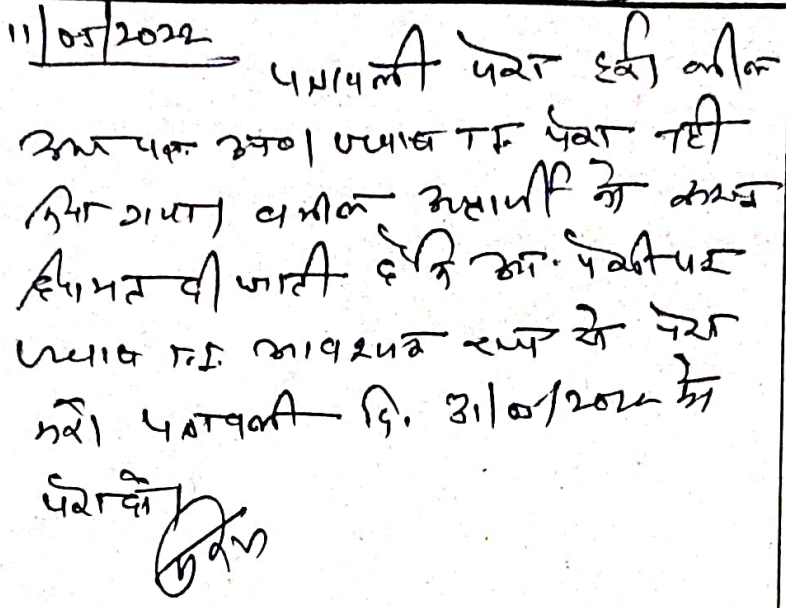 11/05/2022
पत्रावली पेश हुई। वकील
उभय पक्ष उप०। जवाब T.I. पेश नहीं
किया गया। वकील अप्रार्थी को
हिदायत दी जाती है कि आ. पेशी पर
जवाब T.I. आवश्यक रूप से पेश
करें। पत्रावली दि. 31/05/2022 को
पेश हो।